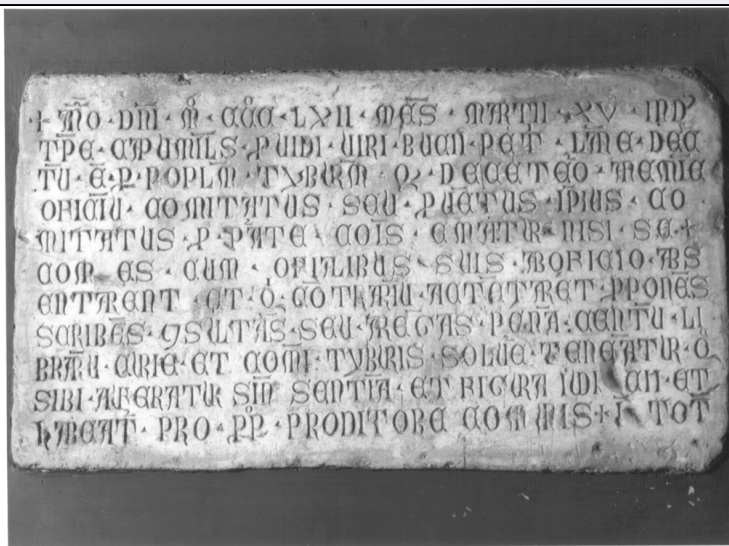 + AÑO · DÑI · M̊ · CC̊C · LXII · MẼS · MARTII · XV · IND
TPE · CAPUMILS · PUIDI · UIRI · BUCII · PET · LÑE · DEC̃
TU · Ē · P · POPLM · TYBURM · Q · DECETEO · NEMIE
OFICIU · COMITATUS · SEU · PUETUS · IPIUS · CO
MITATUS · P · PATE · COIS · EMATUR · NISI · SE +
COMES · CUM · OFITALIBUS · SUIS · ABOFICIO · ABS
ENTARENT · ET · Q · COTRARIU · ACTETARET · PPONES
SCRIBES · 9SULTAS · SEU · AREGAS · PENA · CENTU · LI
BRARU · CURIE · ET · COMI · TYBURIS · SOLUE · TENEATUR · Q
SIBI · AUFERATUR SIÑ SENTIA · ET FIGURA IUDI CII · ET
HABEAT · PRO · PP · PRODITORE COMUNIS + I TOT